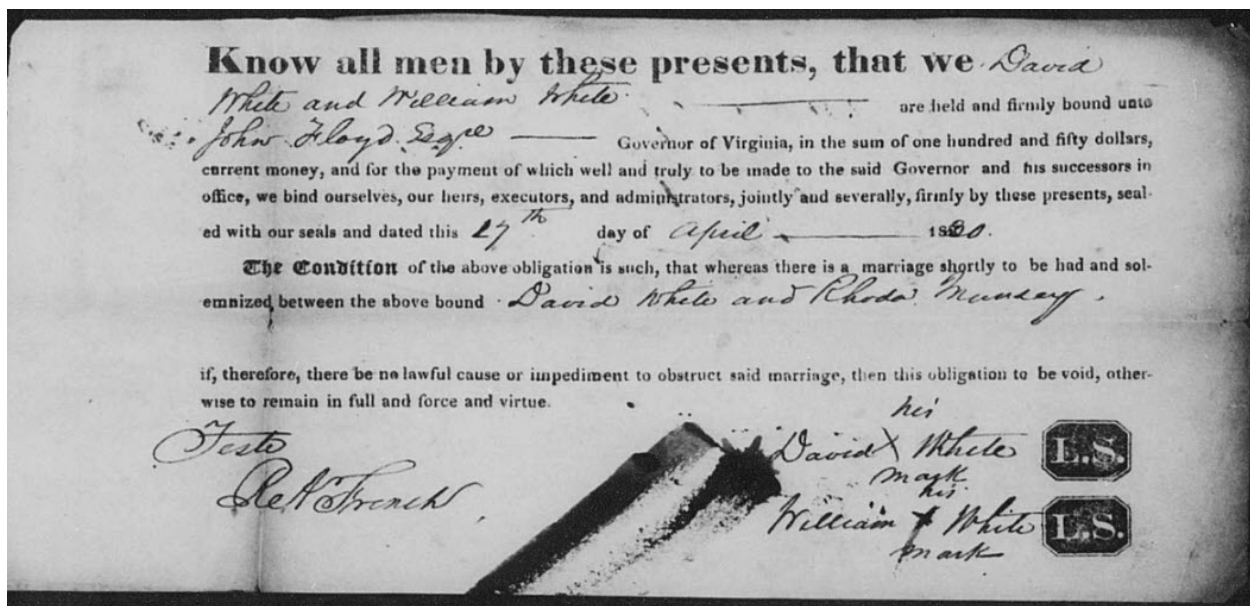 Know all men by these presents, that we David
White and William White are held and firmly bound unto
John Floyd Esqre Governor of Virginia, in the sum of one hundred and fifty dollars,
current money, and for the payment of which well and truly to be made to the said Governor and his successors in
office, we bind ourselves, our heirs, executors, and administrators, jointly and severally, firmly by these presents, seal-
ed with our seals and dated this 17th day of April 1830.
The Condition of the above obligation is such, that whereas there is a marriage shortly to be had and sol-
emnized between the above bound David White and Rhoda Munsey.
if, therefore, there be no lawful cause or impediment to obstruct said marriage, then this obligation to be void, other-
wise to remain in full and force and virtue.
his
Teste David X White L.S.
mark
French his
William X White L.S.
mark